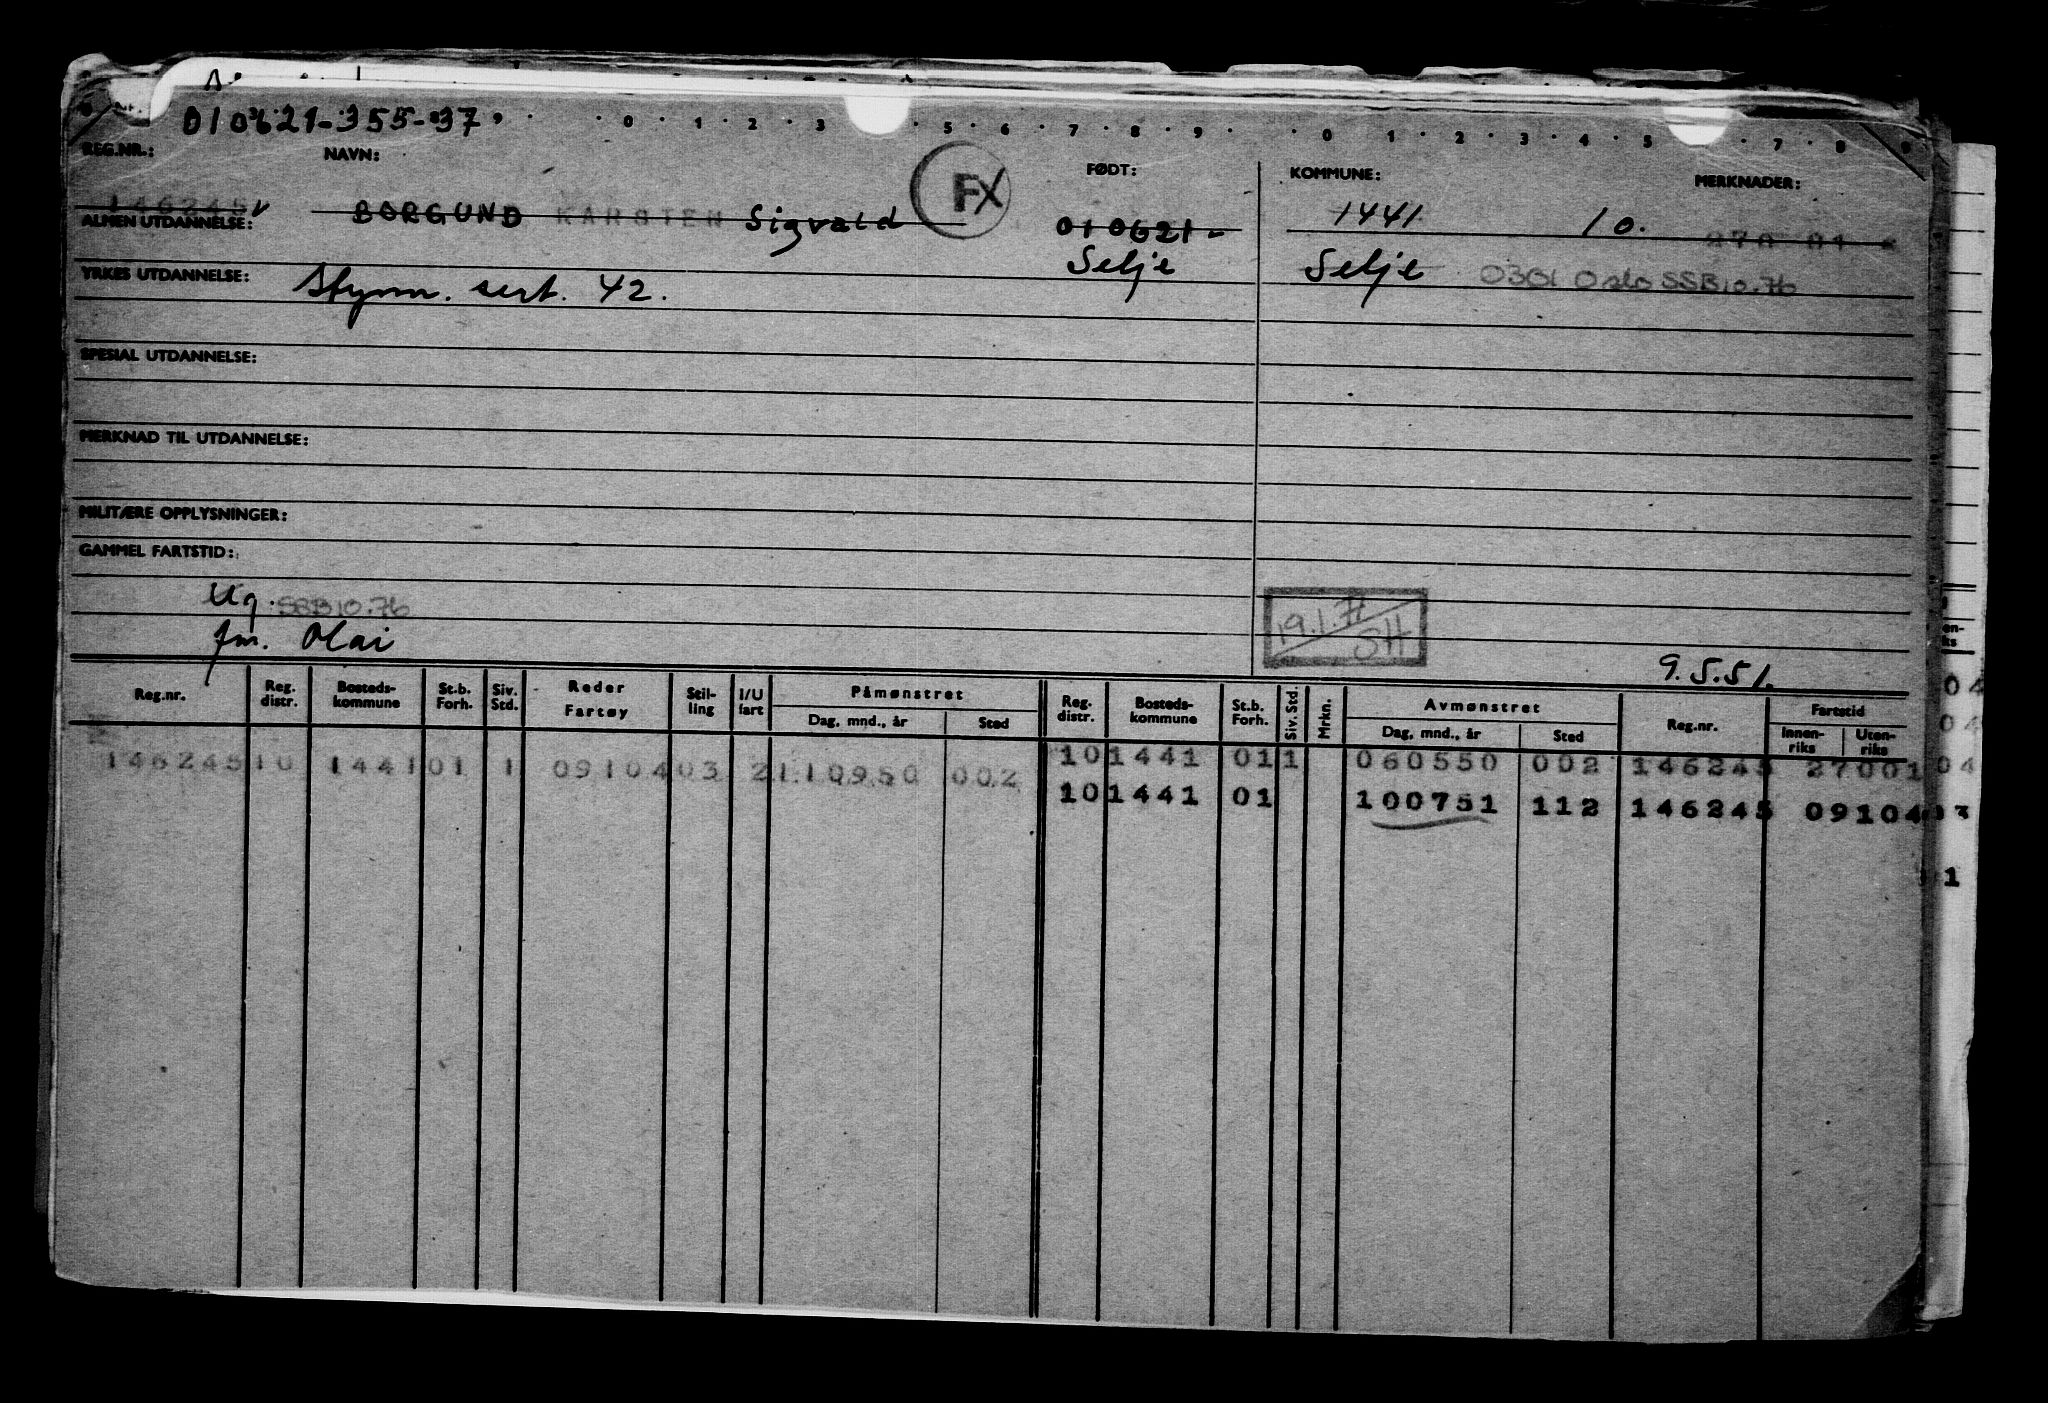 010621-355-37.
0 · 1 · 2 · 3 · 5 · 6 · 7 · 8 · 9 · 0 · 1 · 2 · 3 · 4 · 5 · 7 · 8 · 9
REG.NR.: NAVN: FX FØDT: KOMMUNE: MERKNADER:
146245 v BORGUND KARSTEN Sigvald 010621- 1441 10.
ALMEN UTDANNELSE: Selje Selje 0301 Oslo SSB10.76
YRKES UTDANNELSE: Styrm. sert. 42.
SPESIAL UTDANNELSE:
MERKNAD TIL UTDANNELSE:
MILITÆRE OPPLYSNINGER:
GAMMEL FARTSTID:
Ug. SSB10.76 19.1.71
fm. Olai SH
9.5.51.
Reg.nr. Reg. distr. Bosteds-kommune St.b. Forh. Siv. Std. Reder Fartøy Stil-ling I/U fart Påmønstret Dag, mnd., år Sted Reg. distr. Bosteds-kommune St.b. Forh. Siv. Std. Mrkn. Avmønstret Dag, mnd., år Sted Reg.nr. Fartstid Innen-riks Uten-riks
146245 10 1441 01 1 09104 03 2 110950 002 10 1441 01 1 060550 002 146245 27001 04
10 1441 01 100751 112 146245 09104